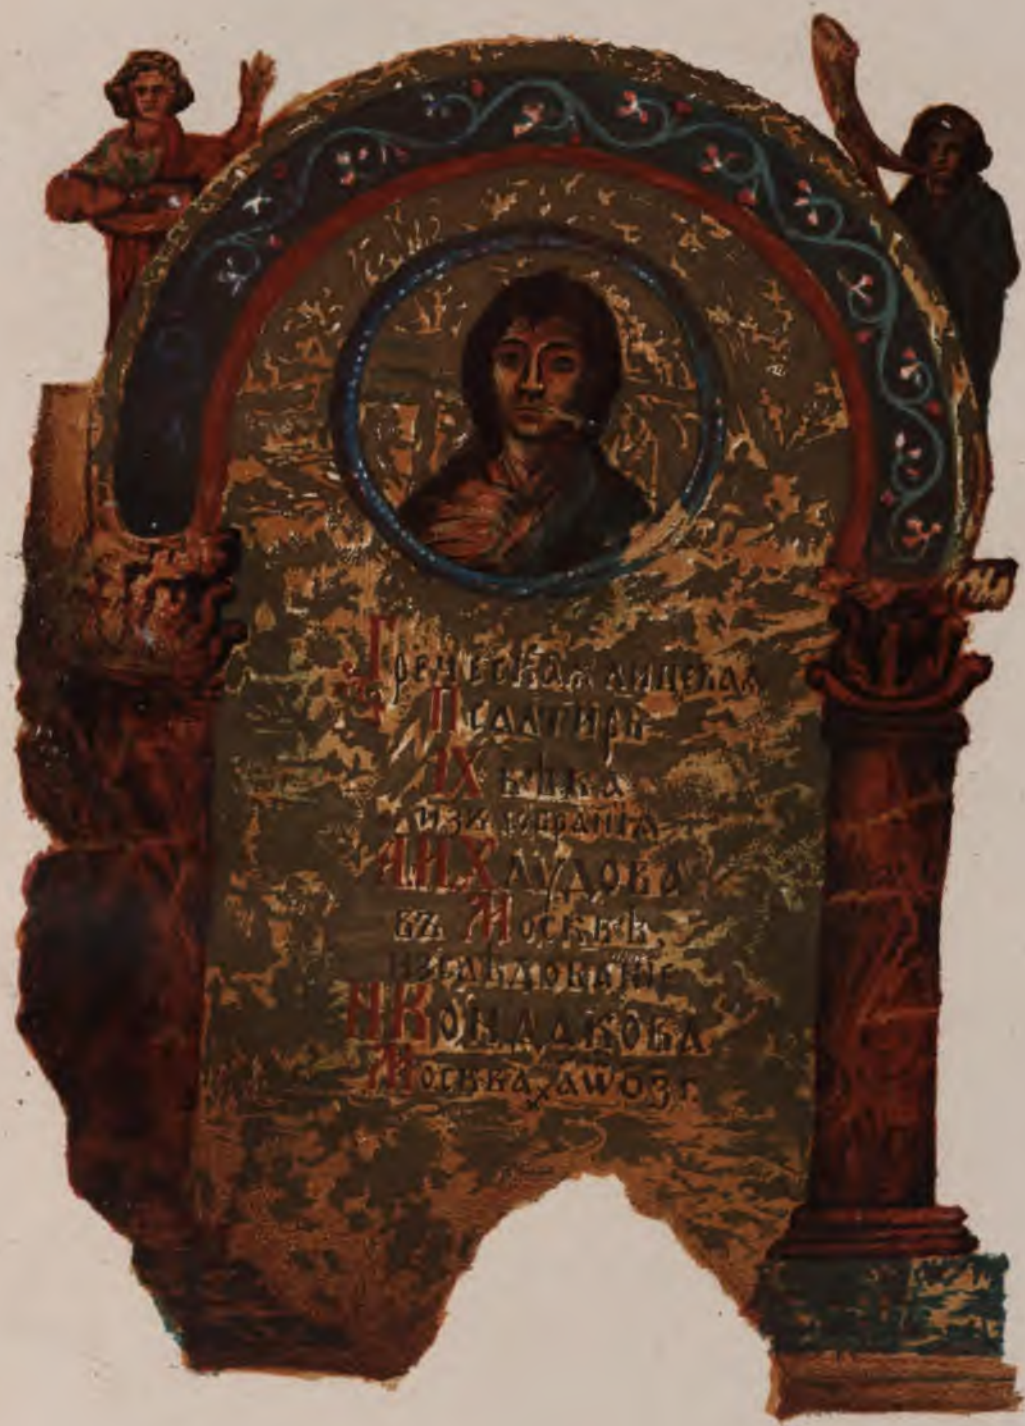 Греческая лицевая
Псалтирь
IX вѣка
изъ собранїя
А.И.Хлудова
въ Москвѣ,
изслѣдованїе
Н.Кондакова
Москва ҂аѡоз г.